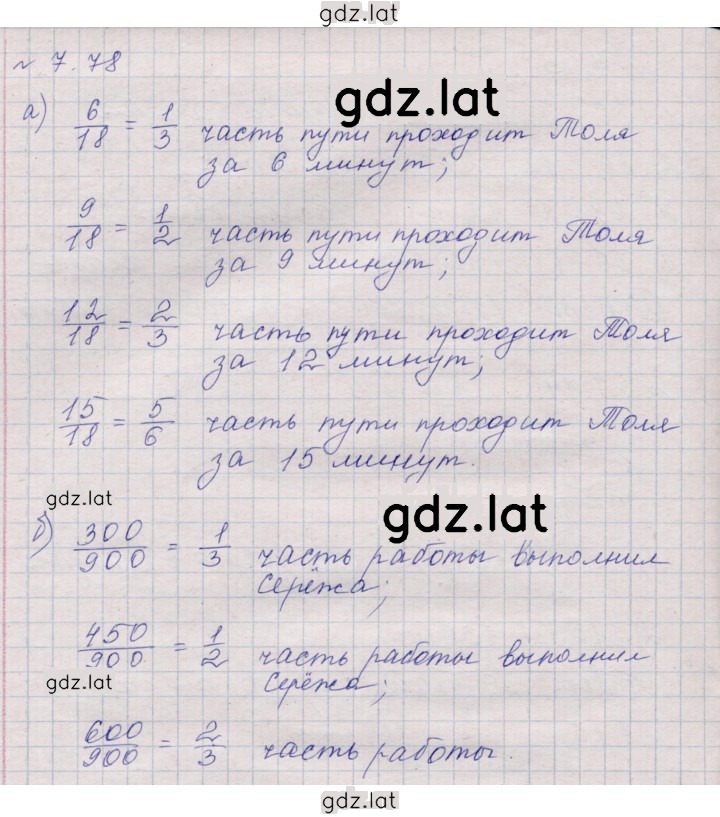 gdz.lat
№ 7.78
gdz.lat
а) 6/18 = 1/3 часть пути проходит Толя
за 6 минут;
9/18 = 1/2 часть пути проходит Толя
за 9 минут;
12/18 = 2/3 часть пути проходит Толя
за 12 минут;
15/18 = 5/6 часть пути проходит Толя
за 15 минут.
gdz.lat
gdz.lat
б) 300/900 = 1/3 часть работы выполнил
Серёжа;
450/900 = 1/2 часть работы выполнил
Серёжа;
gdz.lat
600/900 = 2/3 часть работы.
gdz.lat